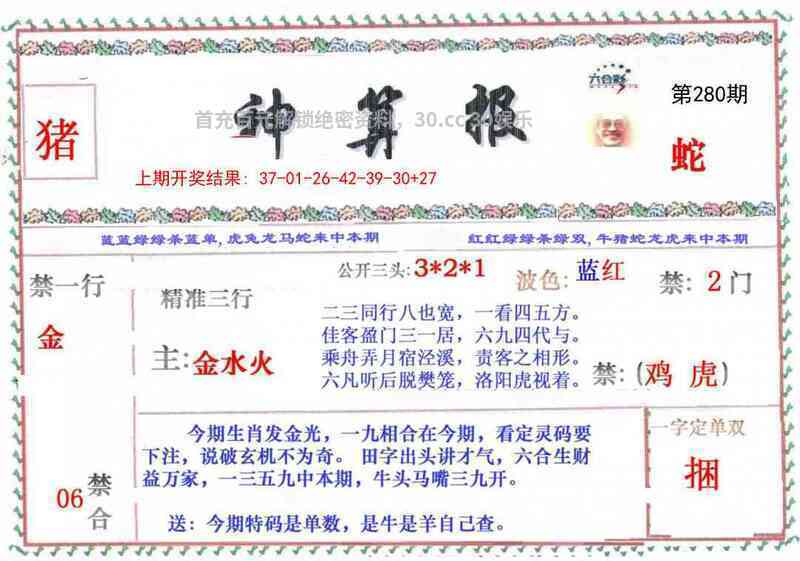 神算报
首充百元解锁绝密资料，30.cc30娱乐
六合彩
第280期
猪
蛇
上期开奖结果：37-01-26-42-39-30+27
蓝蓝绿绿杀蓝单,虎兔龙马蛇来中本期
红红绿绿杀绿双,牛猪蛇龙虎来中本期
禁一行
金
精准三行
主:金水火
公开三头:3*2*1
波色:蓝红
禁:2门
二三同行八也宽，一看四五方。
佳客盈门三一居，六九四代与。
乘舟弄月宿泾溪，贵客之相形。
六凡听后脱樊笼，洛阳虎视着。
禁:(鸡 虎)
06
禁合
今期生肖发金光，一九相合在今期，看定灵码要
下注，说破玄机不为奇。 田字出头讲才气，六合生财
益万家，一三五九中本期，牛头马嘴三九开。
送：今期特码是单数，是牛是羊自己查。
一字定单双
捆